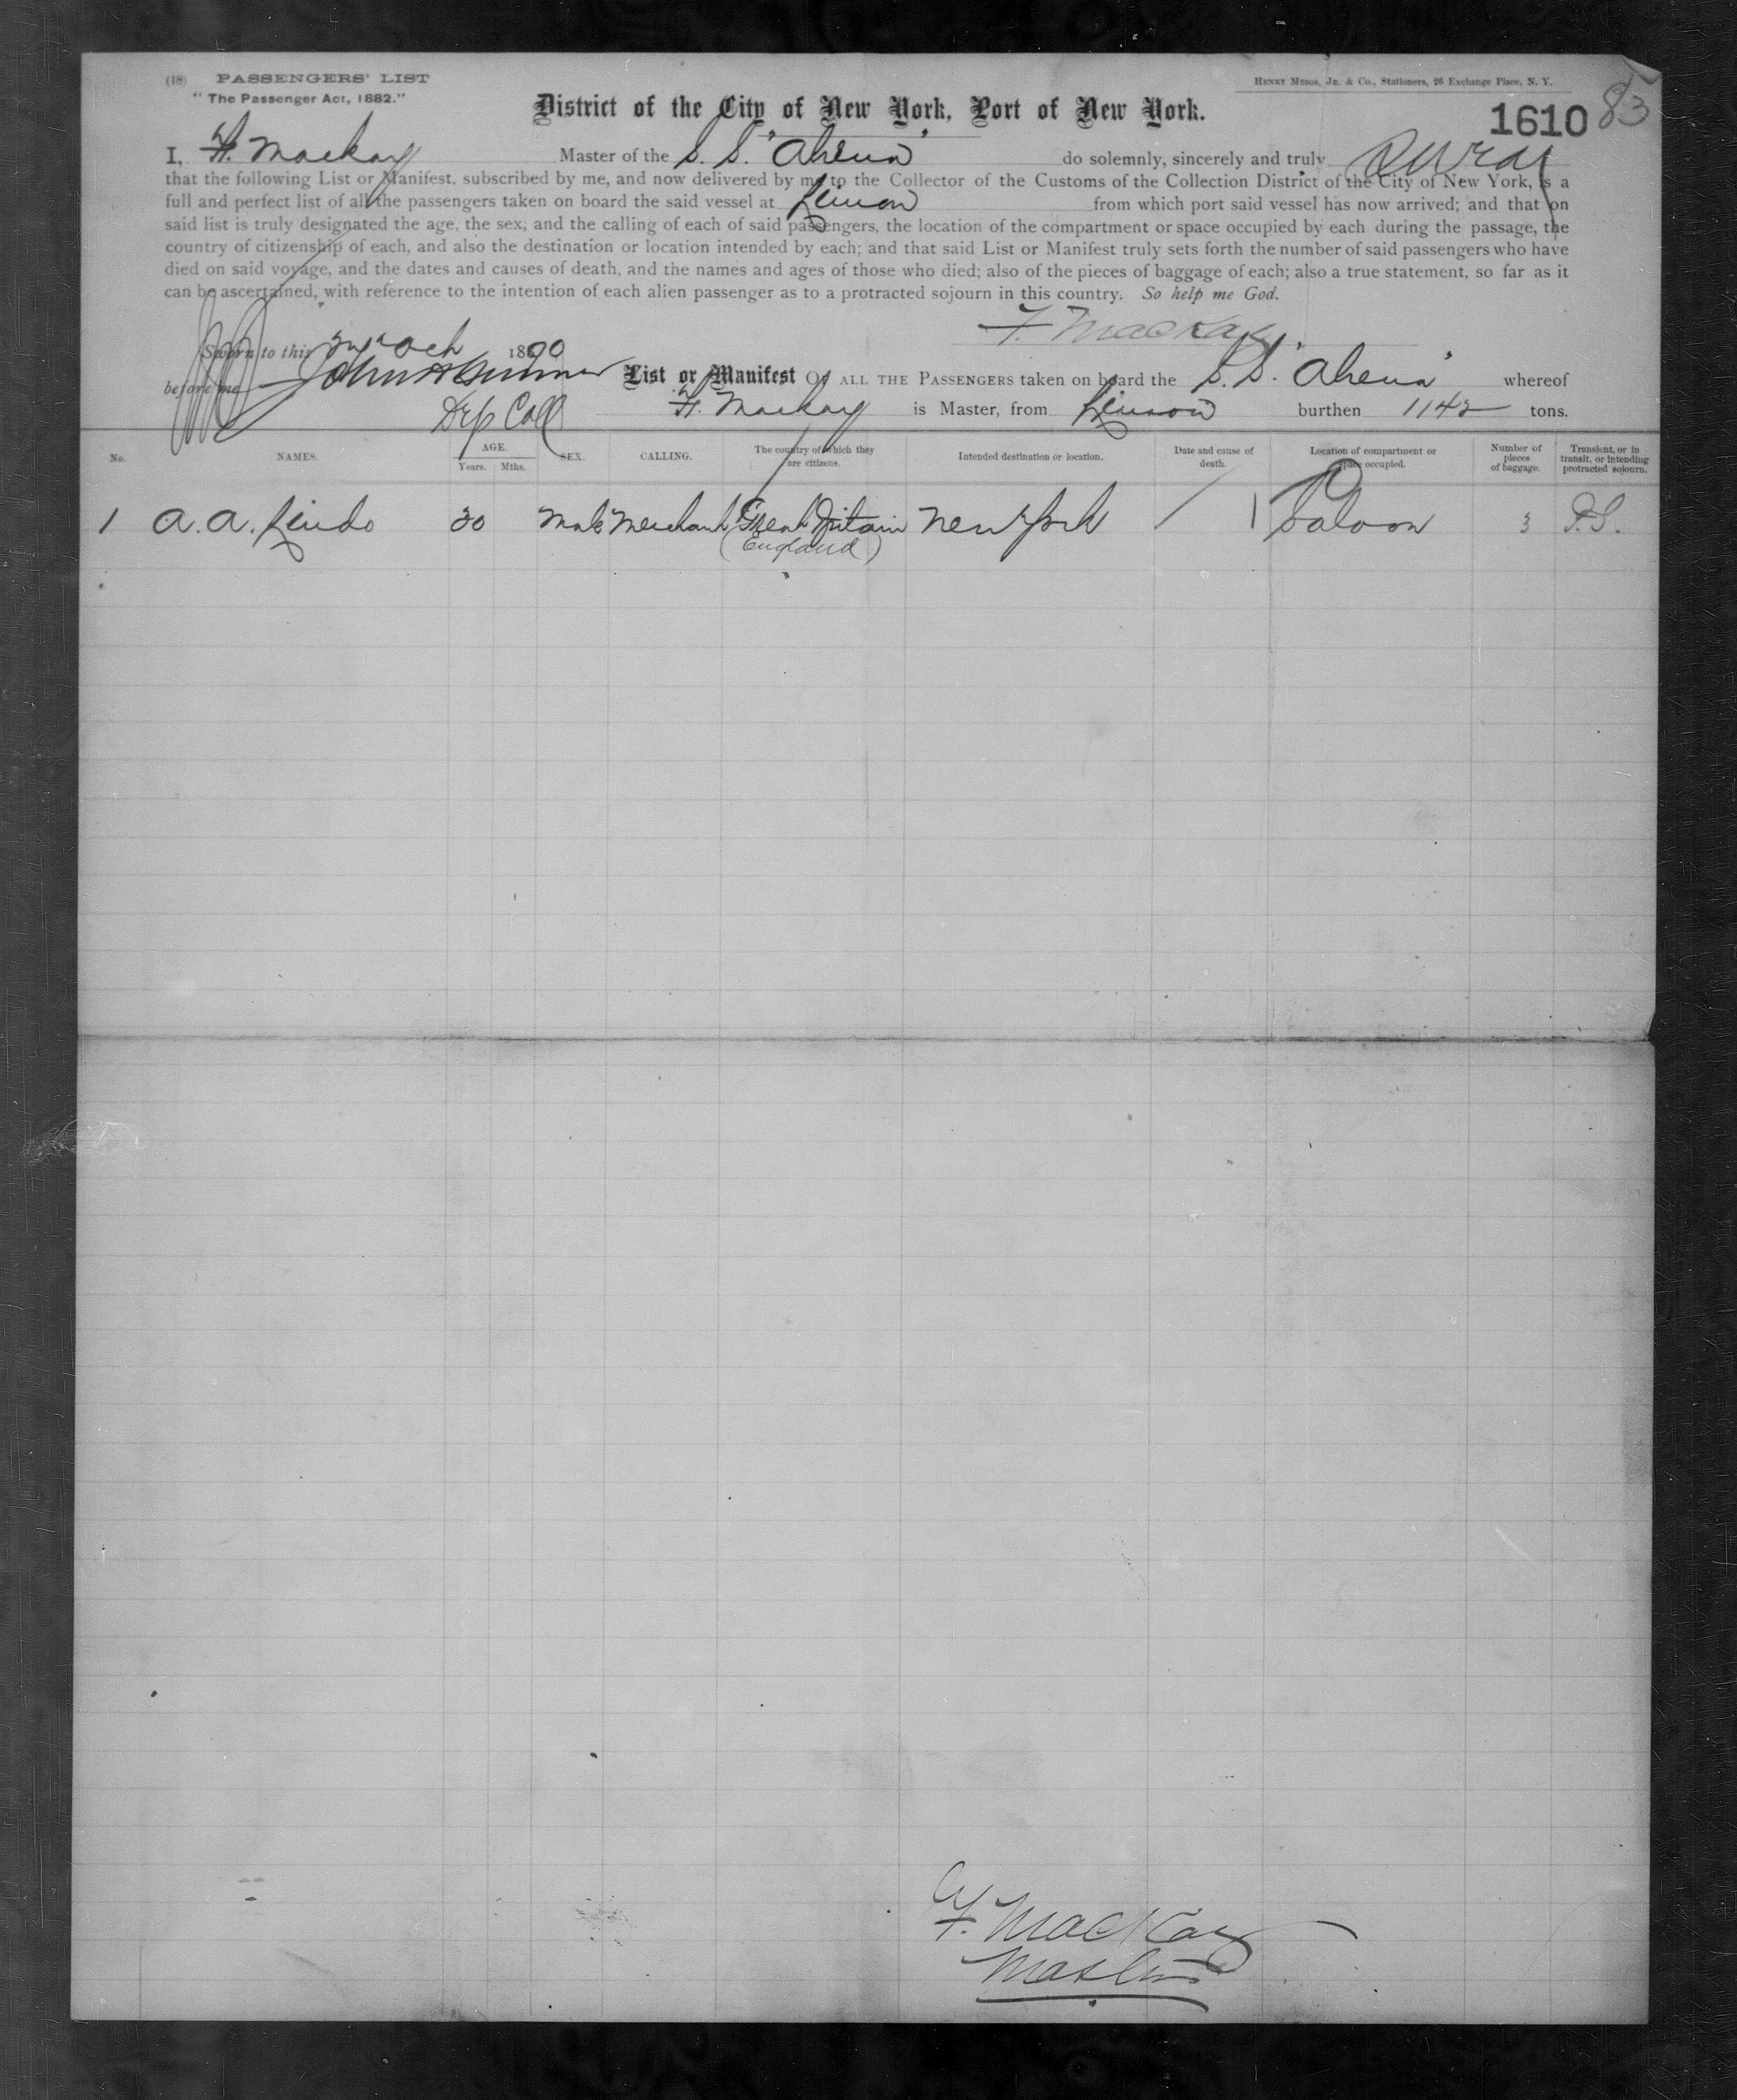 (18) PASSENGERS' LIST
HENRY MEIGS, JR. & CO., Stationers, 26 Exchange Place, N. Y.
"The Passenger Act, 1882."
District of the City of New York, Port of New York.
1610 83
I, F. Mackay Master of the S. S. "Athena" do solemnly, sincerely and truly swear
that the following List or Manifest, subscribed by me, and now delivered by me to the Collector of the Customs of the Collection District of the City of New York, is a
full and perfect list of all the passengers taken on board the said vessel at Limon from which port said vessel has now arrived; and that on
said list is truly designated the age, the sex, and the calling of each of said passengers, the location of the compartment or space occupied by each during the passage, the
country of citizenship of each, and also the destination or location intended by each; and that said List or Manifest truly sets forth the number of said passengers who have
died on said voyage, and the dates and causes of death, and the names and ages of those who died; also of the pieces of baggage of each; also a true statement, so far as it
can be ascertained, with reference to the intention of each alien passenger as to a protracted sojourn in this country. So help me God.
F. Mackay
Sworn to this Oct 1890
before me John
List or Manifest OF ALL THE PASSENGERS taken on board the S. S. "Athena" whereof
Dep Coll F. Mackay is Master, from Limon burthen 1142 tons.
No. NAMES. AGE. Years. Mths. SEX. CALLING. The country of which they are citizens. Intended destination or location. Date and cause of death. Location of compartment or space occupied. Number of pieces of baggage. Transient, or in transit, or intending protracted sojourn.
1 A. A. Lindo 30 Male Merchant Great Britain New York / 1 Saloon 3 P.S.
(England)
F. MacKay
Master